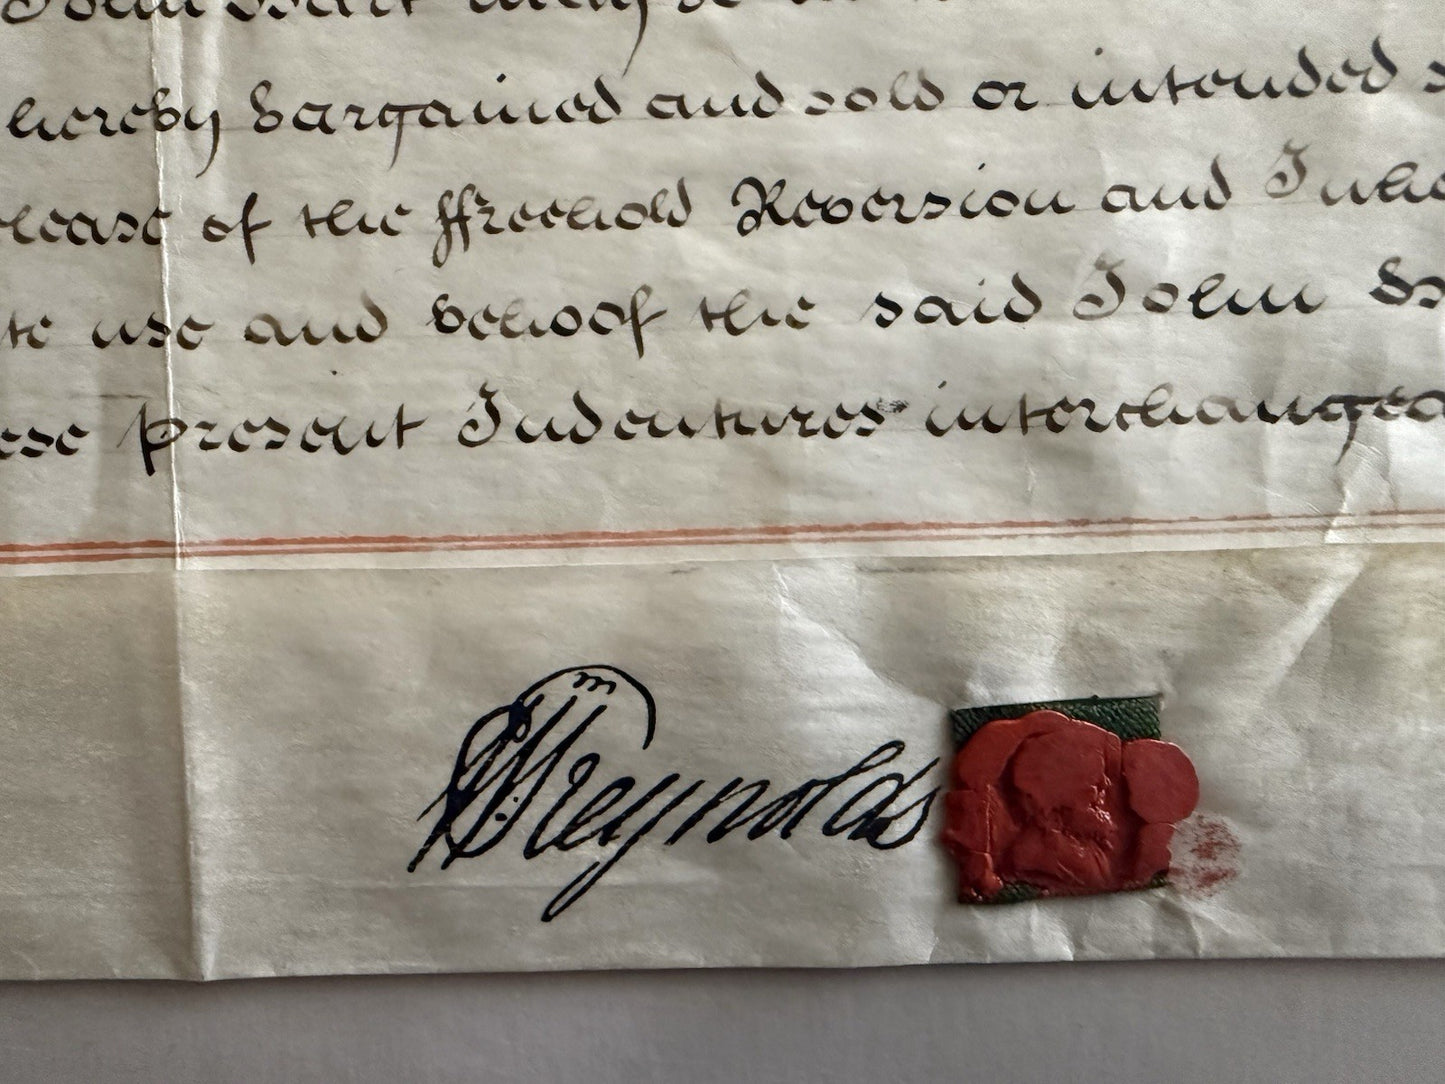 John
hereby bargained and sold or intended
lease of the ffreehold Reversion and Inhe
te use and behoof the said John
ese present Indentures interchangea
Reynolds